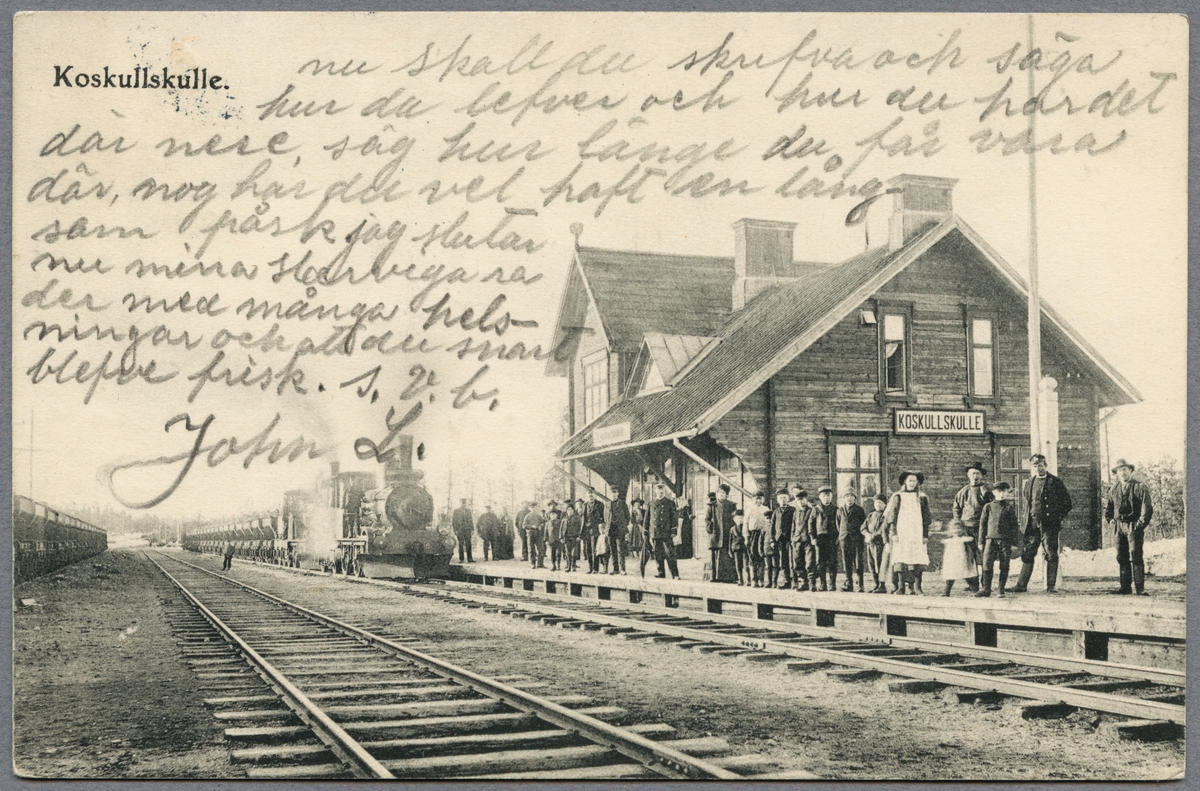 Koskullskulle.
nu skall du skrifva och säga
hur du lefver och hur du har det
där nere, säg hur länge du får vara
där, nog har du vel haft en lång-
sam påsk jag slutar
nu mina
der med många hels-
ningar och att du snart
blefve frisk. s. v. b.
John L.
KOSKULLSKULLE